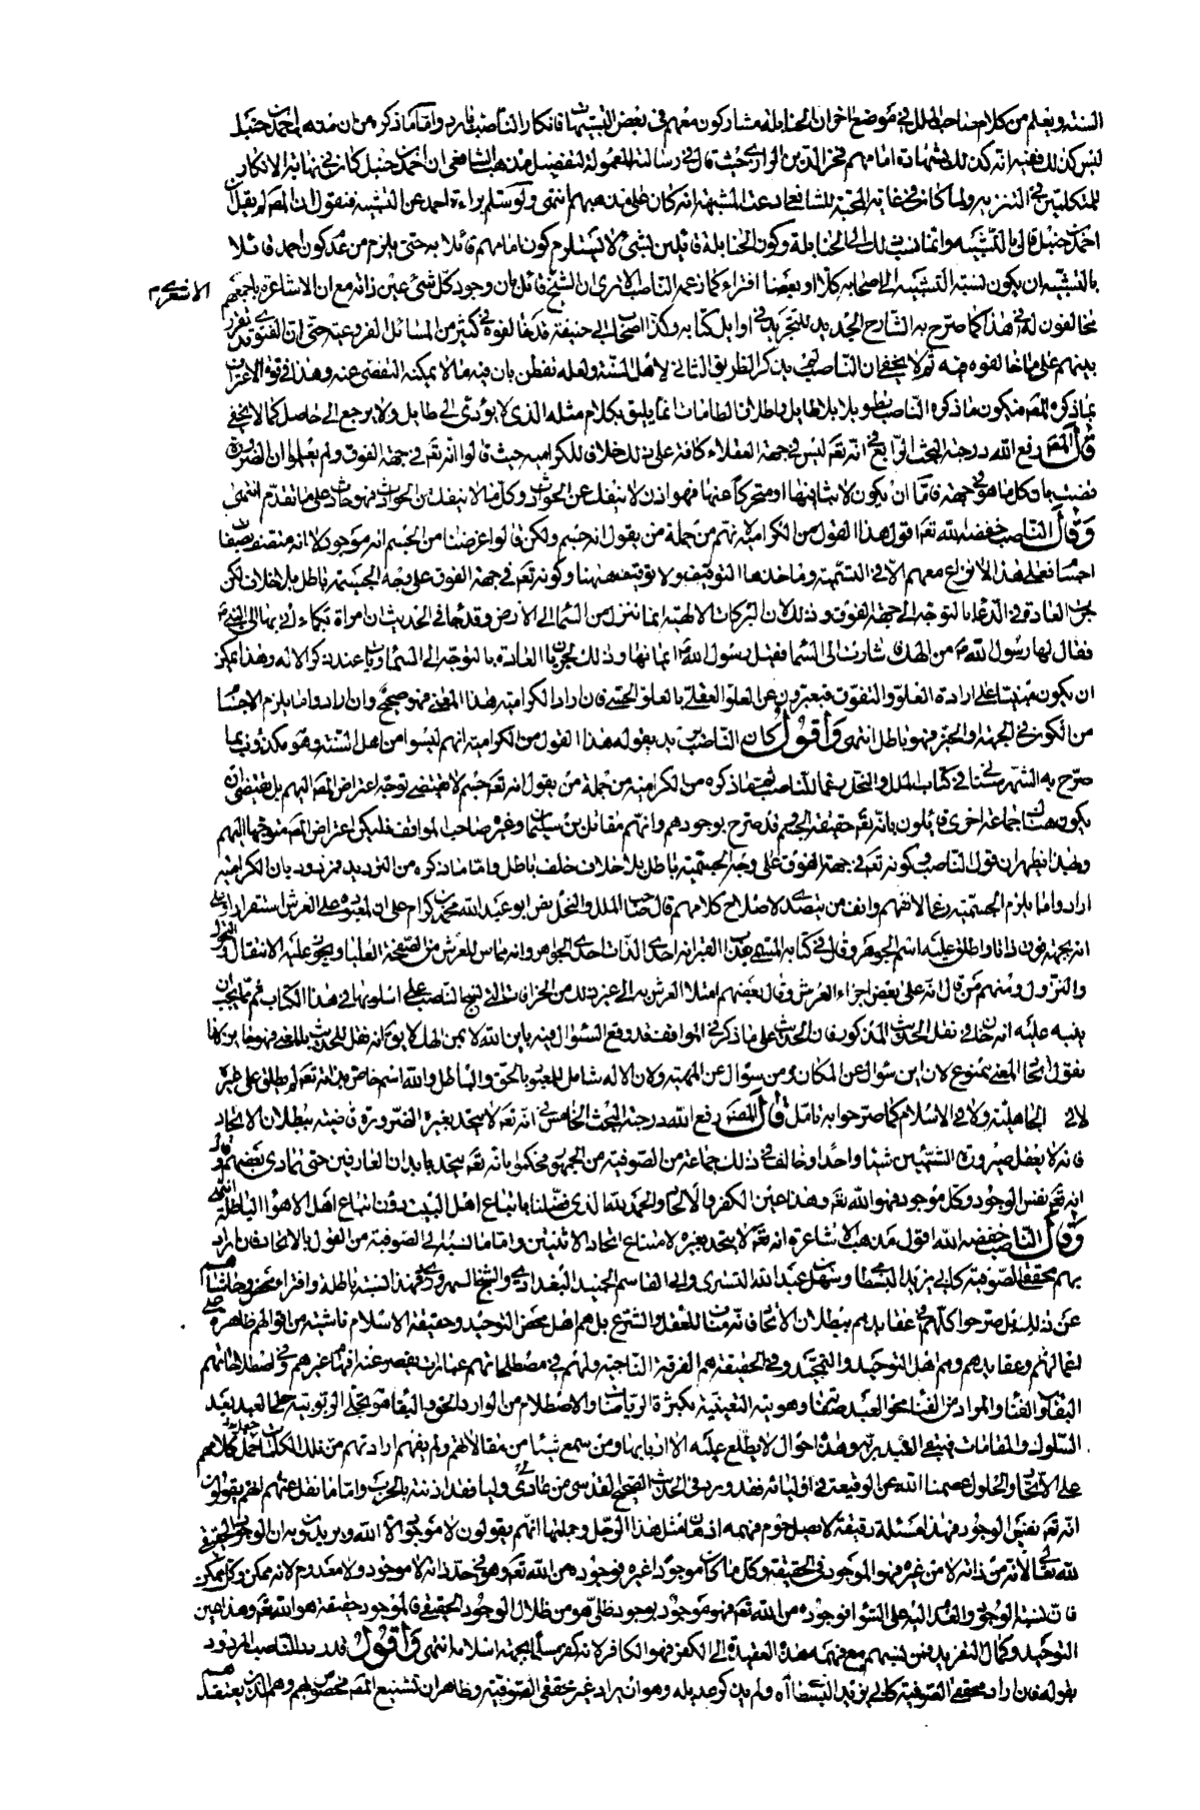 السنة ويعلم من كلام صاحب الملل في موضع اخر ان الحنابلة مشاركون معهم في بعض التشبيهات فانكار الناصب بارد واما ما ذكره من ان مذهب احمد بن حنبل
ليس كذلك ففيه انه كذلك بشهادة امامهم فخر الدين الرازي حيث قال في رسالته المعمولة لتفضيل مذهب الشافعي ان احمد بن حنبل كان في نهاية الانكار
للمتكلمين في التنزيه ولما كان في غاية المحبة للشافعي ادعت المشبهة انه كان على مذهبهم انتهى ولو سلم براءة احمد عن التشبيه فنقول ان المص لم يقل ان
احمد بن حنبل قال بالتشبيه وانما نسب ذلك الى الحنابلة وكون الحنابلة قائلين بشيء لا يستلزم كون امامهم قائلا به حتى يلزم من عدم كون احمد قائلا
بالتشبيه ان يكون نسبة التشبيه الى اصحابه كلا او بعضا افتراء كما زعمه الناصب الا ترى ان الشيخ الاشعري قائل بان وجود كل شيء عين ذاته مع ان الاشاعرة باجمعهم
مخالفون له في هذا كما صرح به الشارح الجديد للتجريد في اوايل كتابه وكذا اصحاب ابي حنيفة قد خالفوه في كثير من المسائل الفروعية حتى ان الفتوى قد تقرر
بينهم على ما خالفوه فيه ثم لا يخفى ان الناصب لم يذكر الطريق الثاني لاهل السنة ولعله تفطن بان فيه ما لا يمكنه التفصي عنه وهذا في قوة الاعتراف
بما ذكره المص فيكون ما ذكره الناصب تطويلا بلا طايل واطلاق الطامات انما يليق بكلام مثله الذي لا يؤدي الى طايل ولا يرجع الى حاصل كما لا يخفى
قال المص رفع الله درجته البحث الرابع في انه تع ليس في جهة العقلاء كافة على ذلك خلافا للكرامية حيث قالوا انه تع في جهة الفوق ولم يعلموا ان الضرورة
قضت بان كل ما هو في جهة فاما ان يكون لابثا فيها او متحركا عنها فهو اذن لا ينفك عن الحوادث وكل ما لا ينفك عن الحوادث فهو حادث على ما تقدم انتهى
وقال الناصب خفضه الله تع اقول هذا القول من الكرامية لانهم من جملة من يقول انه جسم ولكن قالوا غرضنا من الجسم انه موجود لا انه متصف بصفات
اجسام فعلى هذا لا نزاع معهم الا في التسمية وماخذها التوقيف ولا توقيف ههنا وكونه تع في جهة الفوق على وجه الجسمية باطل بلا خلاف لكن
جرت العادة في الدعاء بالتوجه الى جهة الفوق وذلك لان البركات الالهية انما تنزل من السماء الى الارض وقد جاء في الحديث ان امراة بكماء اتي بها الى النبي ص
فقال لها رسول الله ص من الهك فاشارت الى السماء فقبل رسول الله ص ايمانها وذلك لجريان العادة بالتوجه الى السماء عند ذكر الاله وهذا يمكن
ان يكون مبنيا على ارادة العلو والتفوق فيعبرون عن العلو العقلي بالعلو الحسي فان اراد الكرامية هذا المعنى فهو صحيح وان ارادوا ما يلزم الاجسام
من الكون في الجهة والحيز فهو باطل انتهى واقول كان الناصب يريد بقوله هذا القول من الكرامية انهم ليسوا من اهل السنة وهو مكذوب بما
صرح به الشهرستاني في كتاب الملل والنحل رغما للناصب ثم ما ذكره من ان الكرامية من جملة من يقول انه تع جسم لا يقتضي توجه اعتراض المص اليهم بل يقتضي ان
يكون هناك جماعة اخرى قائلون بانه تع جسم حقيقة وقد صرح بوجودهم وانهم مقاتل بن سليمان وغيره صاحب المواقف فليكن اعتراض المص متوجها اليهم
وبهذا يظهر ان قول الناصب في كونه تع في جهة الفوق على وجه الجسمية باطل بلا خلاف خلف باطل واما ما ذكره من الترديد فمردود بان الكرامية
ارادوا ما يلزم الجسمية رغما لانفهم وانف من يتصدى لاصلاح كلامهم قال صاحب الملل والنحل نص ابو عبد الله محمد بن كرام على ان لمعبوده على العرش استقرارا وعلى
انه بجهة فوق ذاتا واطلق عليه اسم الجوهر وقال في كتابه المسمى بعذاب القبر انه احدي الذات احدي الجوهر وانه مماس للعرش من الصفحة العليا ويجوز عليه الانتقال والتحول
والنزول ومنهم من قال انه على بعض اجزاء العرش وقال بعضهم امتلا العرش به الى غير ذلك من الخرافات التي نسج الناصب على اسلوبها في هذا الكتاب ثم مما يجب ان
ينبه عليه انه خان في نقل الحديث المذكور فان الحديث على ما ذكر في المواقف قد وقع السؤال فيه باين الله لا بمن الهك لا يق انه نقل للحديث بالمعنى فهو جايز لانا
نقول اتحاد المعنى ممنوع لان اين سؤال عن المكان ومن سؤال عن المهية ولان الاله شامل للمعبود بالحق والباطل والله اسم خاص بذاته تع لم يطلق على غيره
لا في الجاهلية ولا في الاسلام كما صرحوا به تامل قال المص رفع الله درجته البحث الخامس في انه تع لا يتحد بغيره الضرورة قاضية ببطلان الاتحاد
فانه لا يعقل صيرورة الشيئين شيئا واحدا وخالف في ذلك جماعة من الصوفية من الجمهور فحكموا بانه تع يتحد بابدان العارفين حتى تمادى بعضهم وقال
انه تع نفس الوجود وكل موجود فهو الله تع وهذا عين الكفر والالحاد والحمد لله الذي فضلنا باتباع اهل البيت دون اتباع اهل الاهواء الباطلة انتهى
وقال الناصب خفضه الله اقول مذهب الاشاعرة انه تع لا يتحد بغيره لامتناع اتحاد الاثنين واما ما نسبه الى الصوفية من القول بالاتحاد فان اراد
بهم محققي الصوفية كابي يزيد البسطامي وسهل بن عبد الله التستري وابي القاسم الجنيد البغدادي والشيخ السهروردي فهذا نسبة باطلة وافتراء محض وحاشاهم
عن ذلك بل صرحوا كلهم في عقايدهم ببطلان الاتحاد فانه مناف للعقل والشرع بل هم اهل محض التوحيد وحقيقة الاسلام ناشئة من اقوالهم ظاهرة على
اعمالهم وعقايدهم وهم اهل التوحيد والتمجيد وفي الحقيقة هم الفرقة الناجية ولهم في مصطلحاتهم عبارات يقصر عنها افهام غيرهم وفي اصطلاحاتهم
البقاء والفناء والمراد من الفناء محو العبد صفاته وهويته التعينية بكثرة الرياضات والاصطلام من الوارد الحق والبقاء هو تجلي الربوبية على العبد بعد
السلوك والمقامات فيبقى العبد بربه وهذه احوال لا يطلع عليه الا اربابها ومن سمع شيئا من مقالاتهم ولم يفهم ارادتهم من تلك الكلمات حمل كلامهم جهله
على الاتحاد والحلول عصمنا الله عن الوقيعة في اوليائه فقد ورد في الحديث الصحيح القدسي من عادى لي وليا فقد اذنته بالحرب واما ما نقل عنهم انهم يقولون
انه تع نفس الوجود فهذه مسئلة دقيقة لا يصل حوم فهمه اذهان مثل هذا الرجل وجملتها انهم يقولون لا موجود الا الله ويريدون به ان الوجود الحقيقي
لله تعالى لانه من ذاته لا من غيره فهو الموجود في الحقيقة وكل ما كان موجودا غيره فوجوده من الله تع وهو في حد ذاته لا موجود ولا معدوم لانه ممكن وكل ممكن
فان نسبة الوجود والعدم اليه على السواء فوجوده من الله تع فهو موجود بوجود ظلي هو من ظلال الوجود الحقيقي فالموجود حقيقة هو الله تع وهذا عين
التوحيد وكمال التفريد فمن نسبهم مع فهمه هذه العقيدة الى الكفر فهو الكافر لانه كفر مسلما بجهة اسلامه انتهى واقول قد ردد الناصب المردود
بقوله فان اراد محققي الصوفية كابي يزيد البسطامي آه ولم يذكر عديله وهو ان يراد غير محققي الصوفية وظاهر ان تشنيع المص مخصوص بهم وهم الذين يعتقد